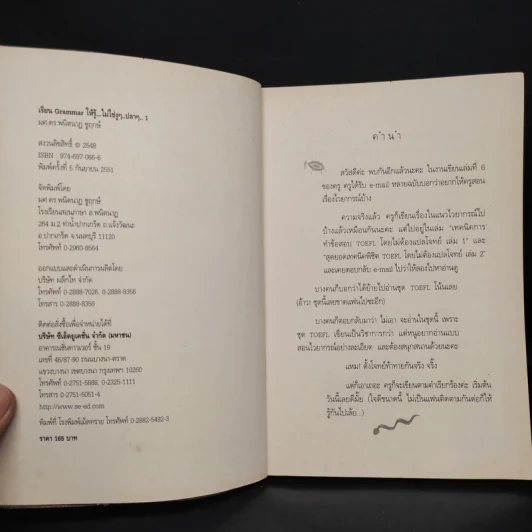 เรียน Grammar ให้รู้...ไม่ใช่งูๆ..ปลาๆ.. 1
ผศ.ดร.พนิตนาฏ ชูฤกษ์
สงวนลิขสิทธิ์ © 2548
ISBN : 974-697-066-6
พิมพ์ครั้งที่ 5 กันยายน 2551
จัดพิมพ์โดย
ผศ.ดร.พนิตนาฏ ชูฤกษ์
โรงเรียนสอนภาษา อ.พนิตนาฏ
284 ม.2 ท่าน้ำปากเกร็ด ถ.แจ้งวัฒนะ
อ.ปากเกร็ด จ.นนทบุรี 11120
โทรศัพท์ 0-2960-8564
ออกแบบและดำเนินการผลิตโดย
บริษัท ผลึกไท จำกัด
โทรศัพท์ 0-2888-7026, 0-2888-8356
โทรสาร 0-2888-8358
ติดต่อสั่งซื้อเพื่อจำหน่ายได้ที่
บริษัท ซีเอ็ดยูเคชั่น จำกัด (มหาชน)
อาคารเนชั่นทาวเวอร์ ชั้น 19
เลขที่ 46/87-90 ถนนบางนา-ตราด
แขวงบางนา เขตบางนา กรุงเทพฯ 10260
โทรศัพท์ 0-2751-5888, 0-2325-1111
โทรสาร 0-2751-5051-4
http://www.se-ed.com
พิมพ์ที่ โรงพิมพ์เม็ดทราย โทรศัพท์ 0-2882-5492-3
ราคา 165 บาท
คำนำ
สวัสดีค่ะ พบกันอีกแล้วนะคะ ในงานเขียนเล่มที่ 6
ของครู ครูได้รับ e-mail หลายฉบับบอกว่าอยากให้ครูสอน
เรื่องไวยากรณ์บ้าง
ความจริงแล้ว ครูก็เขียนเรื่องในแนวไวยากรณ์ไป
บ้างแล้วเหมือนกันนะคะ แต่ไปอยู่ในเล่ม "เทคนิคการ
ทำข้อสอบ TOEFL โดยไม่ต้องแปลโจทย์ เล่ม 1" และ
"สุดยอดเทคนิคพิชิต TOEFL โดยไม่ต้องแปลโจทย์ เล่ม
2" และเคยตอบกลับ e-mail ไปว่าให้ลองไปหาอ่านดู
บางคนก็บอกว่าได้ย้ายไปอ่านชุด TOEFL โน้นเลย
(อ้าว! ชุดนี้เลยขาดแฟนไปซะอีก)
บางคนก็ตอบกลับมาว่า ไม่เอา จะอ่านในชุดนี้ เพราะ
ชุด TOEFL เขียนเป็นวิชาการกว่า แต่หนูอยากอ่านแบบ
สอนไวยากรณ์อย่างละเอียด และต้องสนุกสนานด้วยนะคะ
แหม! ตั้งโจทย์ท้าทายกันจริง จริ๊ง
แต่ก็เอาเถอะ ครูก็จะเขียนตามคำเรียกร้องค่ะ เริ่มต้น
วันนี้เลยดีมั้ย (ใจดีขนาดนี้ ไม่เป็นแฟนติดตามกันต่อก็ให้
รู้กันไปล้ะ...)